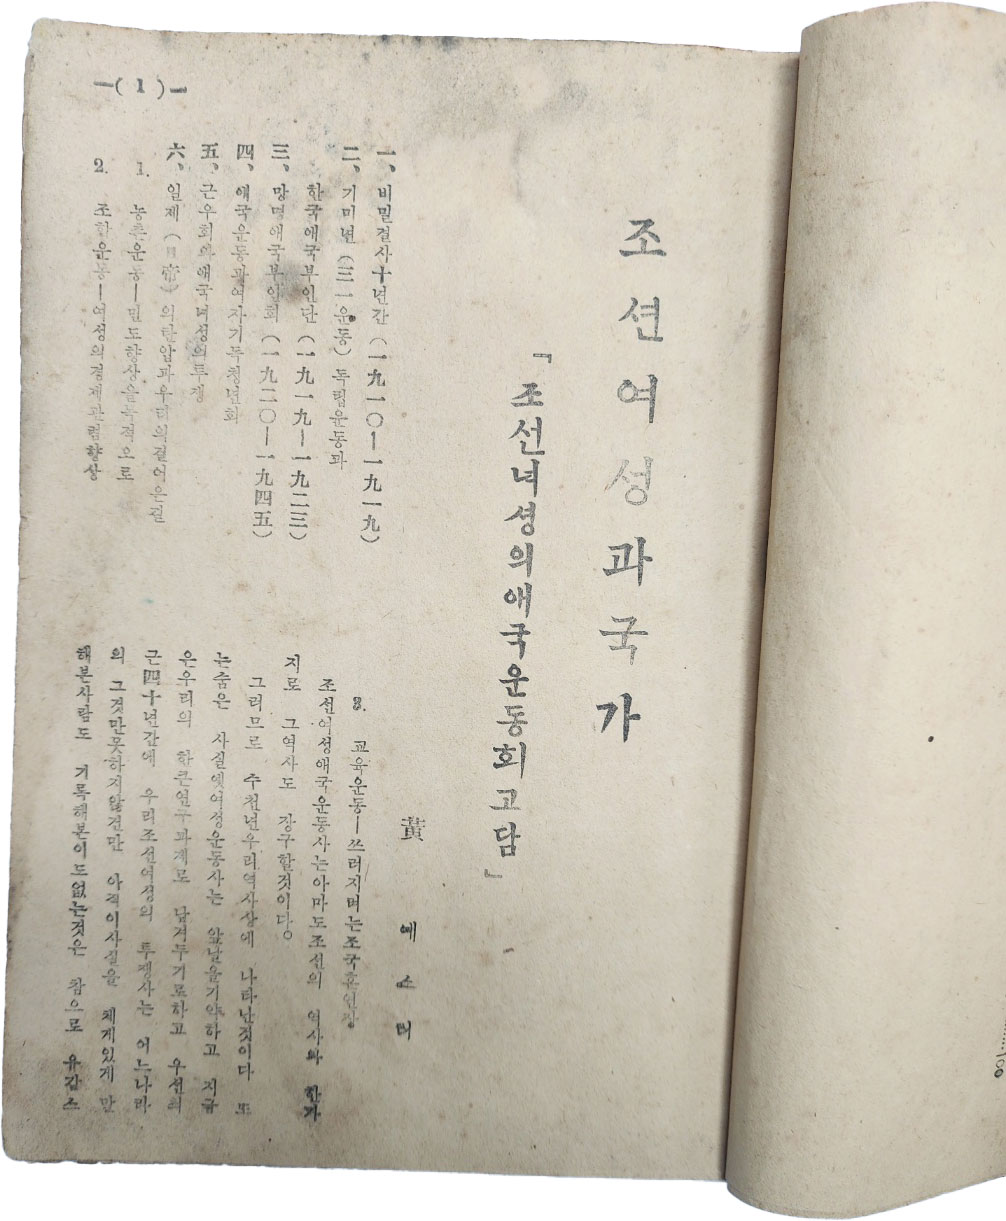 조선여성과국가
「조선녀성의애국운동회고담」
黃 에스터
一、비밀결사十년간(一九一〇—一九一九)
二、기미년(三一운동)독립운동과
한국애국부인단(一九一九—一九二三)
三、망명애국부인회(一九二〇—一九四五)
四、애국운동과여자기독청년회
五、근우회와애국녀성의투쟁
六、일제(日帝)의탄압과우리의걸어온길
1. 농촌운동—민도향상을목적으로
2. 조합운동—여성의경제관렴향상
3. 교육운동—쓰러지며는조국혼연장
조선여성애국운동사는아마도조선의 역사와 한가
지로 그역사도 장구할것이다。
그러므로 수천년우리역사상에 나타난것이다 또
는숨은 사실옛여성운동사는 앞날을기약하고 지금
은우리의 한큰연구과제로 남겨두기로하고 우선의
근四十년간에 우리조선여성의 투쟁사는 어느나라
의 그것만못하지않건만 아직이사실을 체게있게 만
해본사람도 기록해본이도없는것은 참으로 유감스
—(1)—